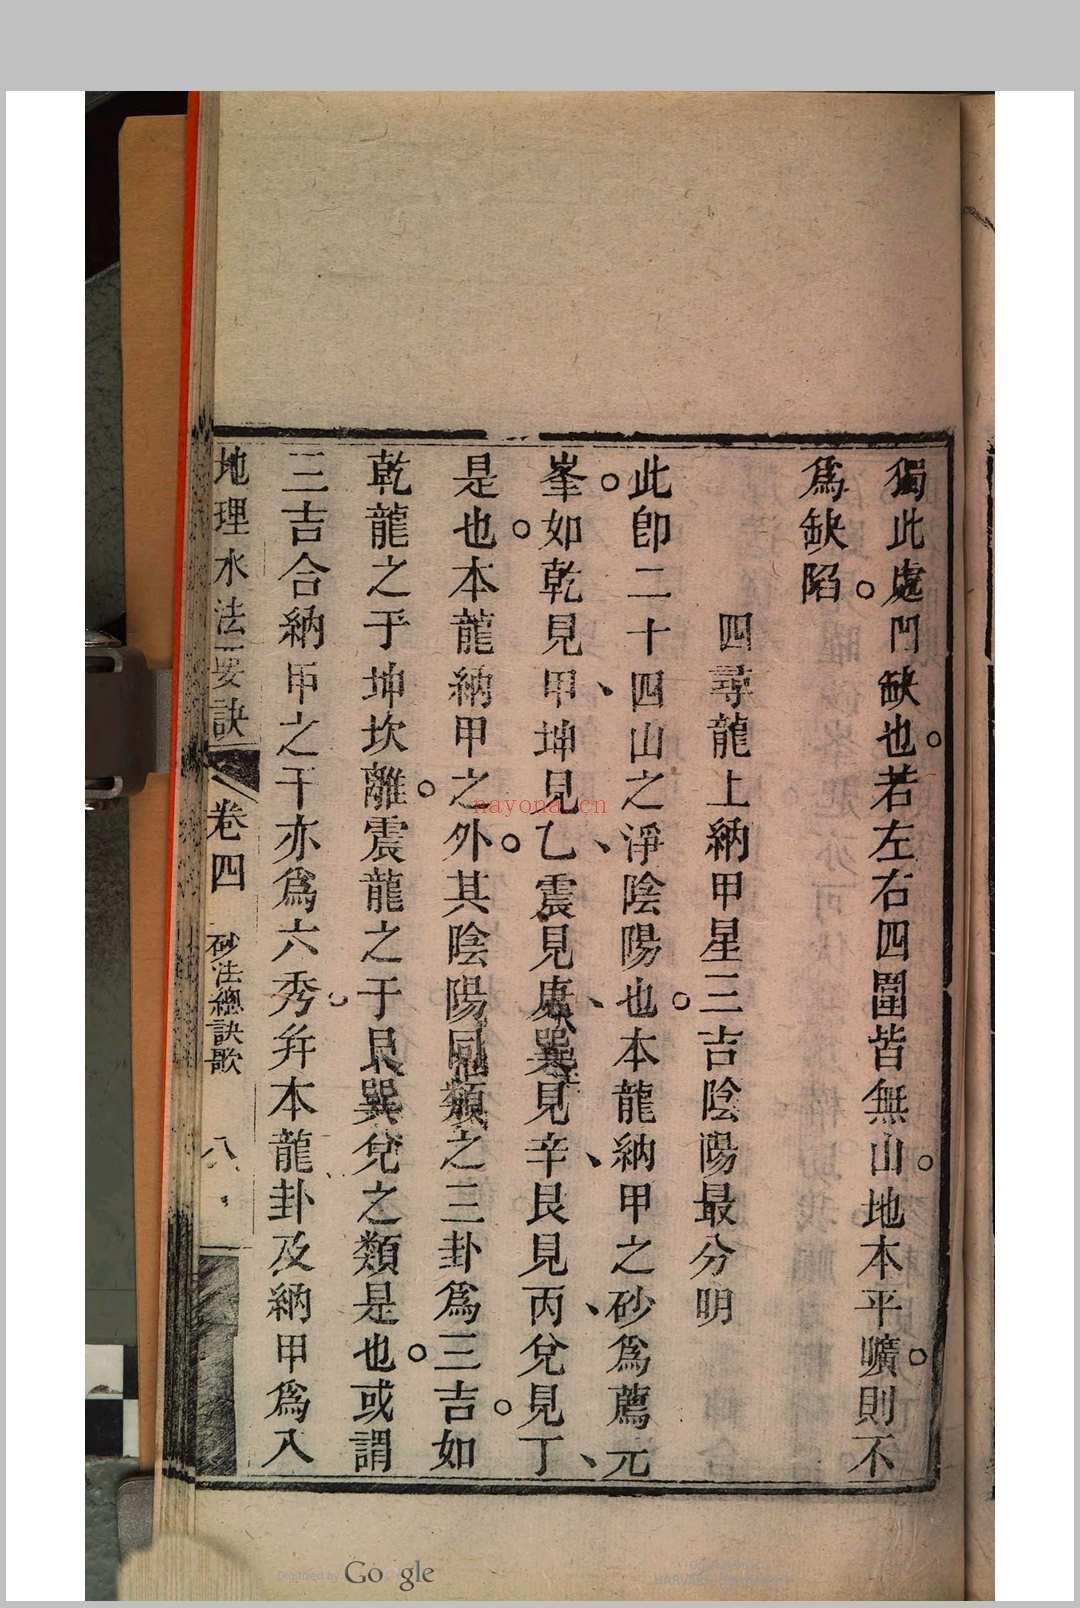 獨此處凹缺也若左右四圍皆無山地本平曠則不
爲缺陷
四尋龍上納甲星三吉陰陽最分明
此卽二十四山之淨陰陽也本龍納甲之砂爲薦元
峯如乾見甲坤見乙震見庚巽見辛艮見丙兌見丁
是也本龍納甲之外其陰陽同類之三卦爲三吉如
乾龍之于坤坎離震龍之于艮巽兌之類是也或謂
三吉合納甲之干亦爲六秀幷本龍卦及納甲爲入
地理水法要訣 卷四 砂法總訣歌 八
nayona.cn
Digitized by Google